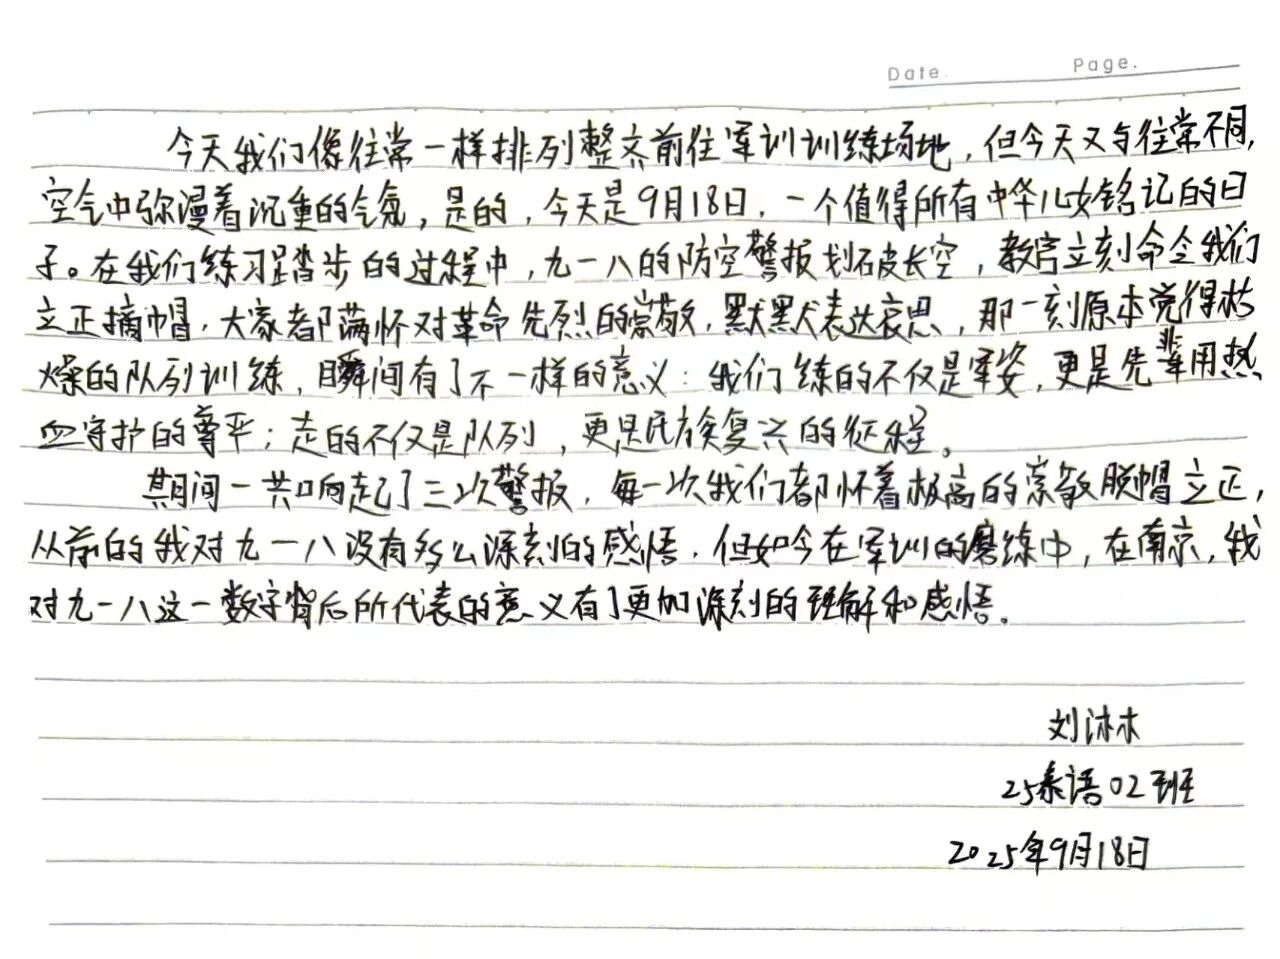 Date. Page.
今天我们像往常一样排列整齐前往军训训练场地，但今天又与往常不同，
空气中弥漫着沉重的气氛，是的，今天是9月18日，一个值得所有中华儿女铭记的日
子。在我们练习踏步的过程中，九一八的防空警报划破长空，教官立刻命令我们
立正摘帽，大家都满怀对革命先烈的崇敬，默默表达哀思，那一刻原本觉得枯
燥的队列训练，瞬间有了不一样的意义：我们练的不仅是军姿，更是先辈用热
血守护的尊严；走的不仅是队列，更是民族复兴的征程。
期间一共响起了三次警报，每一次我们都怀着极高的崇敬脱帽立正，
从前的我对九一八没有多么深刻的感悟，但如今在军训的磨练中，在南京，我
对九一八这一数字背后所代表的意义有了更加深刻的理解和感悟。
刘沐木
25泰语02班
2025年9月18日